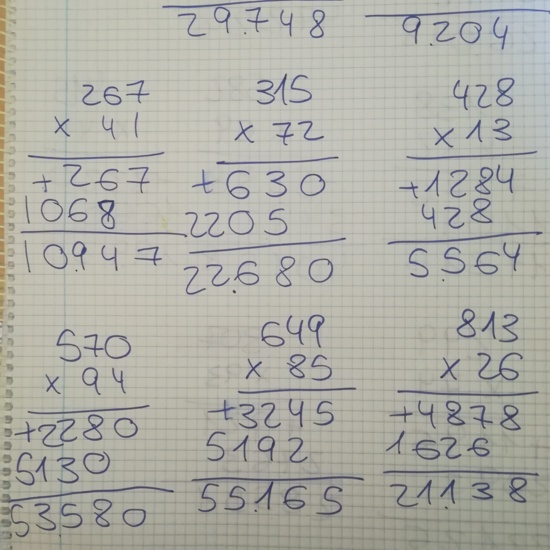 29.748
9.204
267
x 41
+267
1068
10.947
315
x 72
+630
2205
22.680
428
x 13
+1284
428
5.564
570
x 94
+2280
5130
53.580
649
x 85
+3245
5192
55.165
813
x 26
+4878
1626
21.138